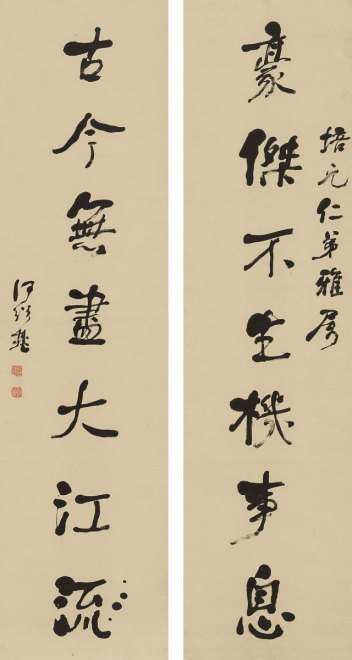 培元仁弟雅属
豪傑不生機事息
古今無盡大江流
何紹基